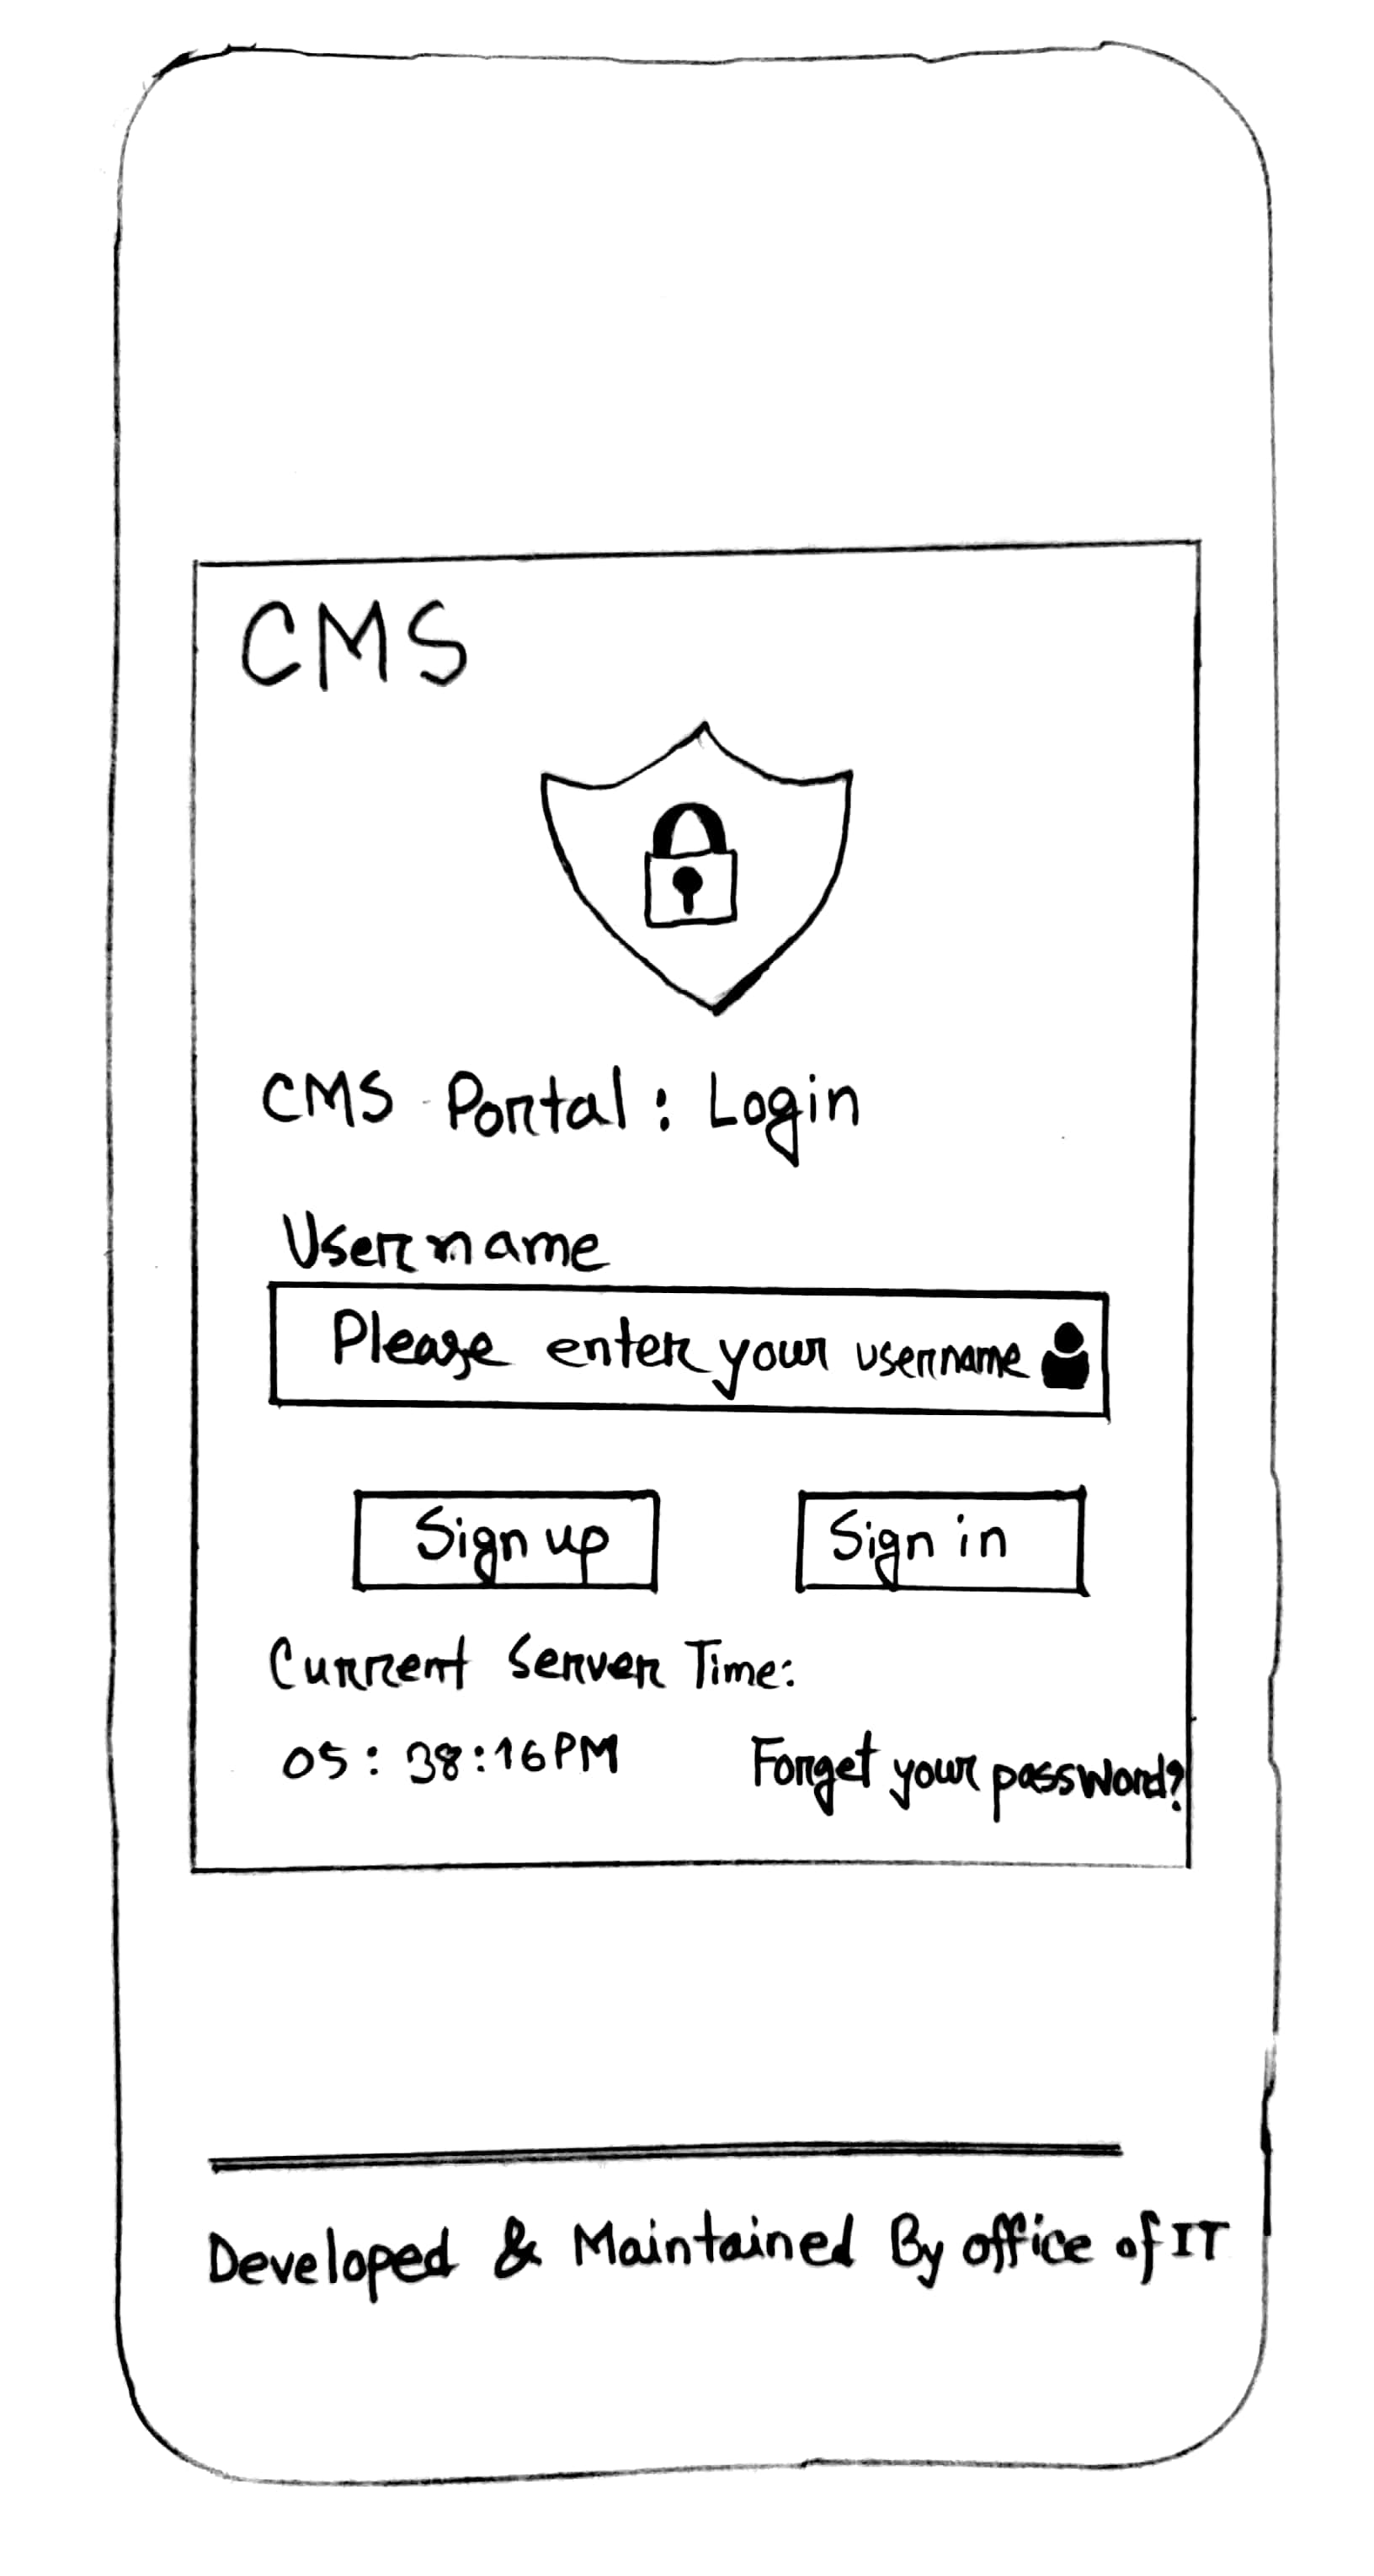 CMS
CMS Portal : Login
Username
Please enter your username
Sign up
Sign in
Current Server Time:
05 : 38:16PM
Forget your password?
Developed & Maintained By office of IT